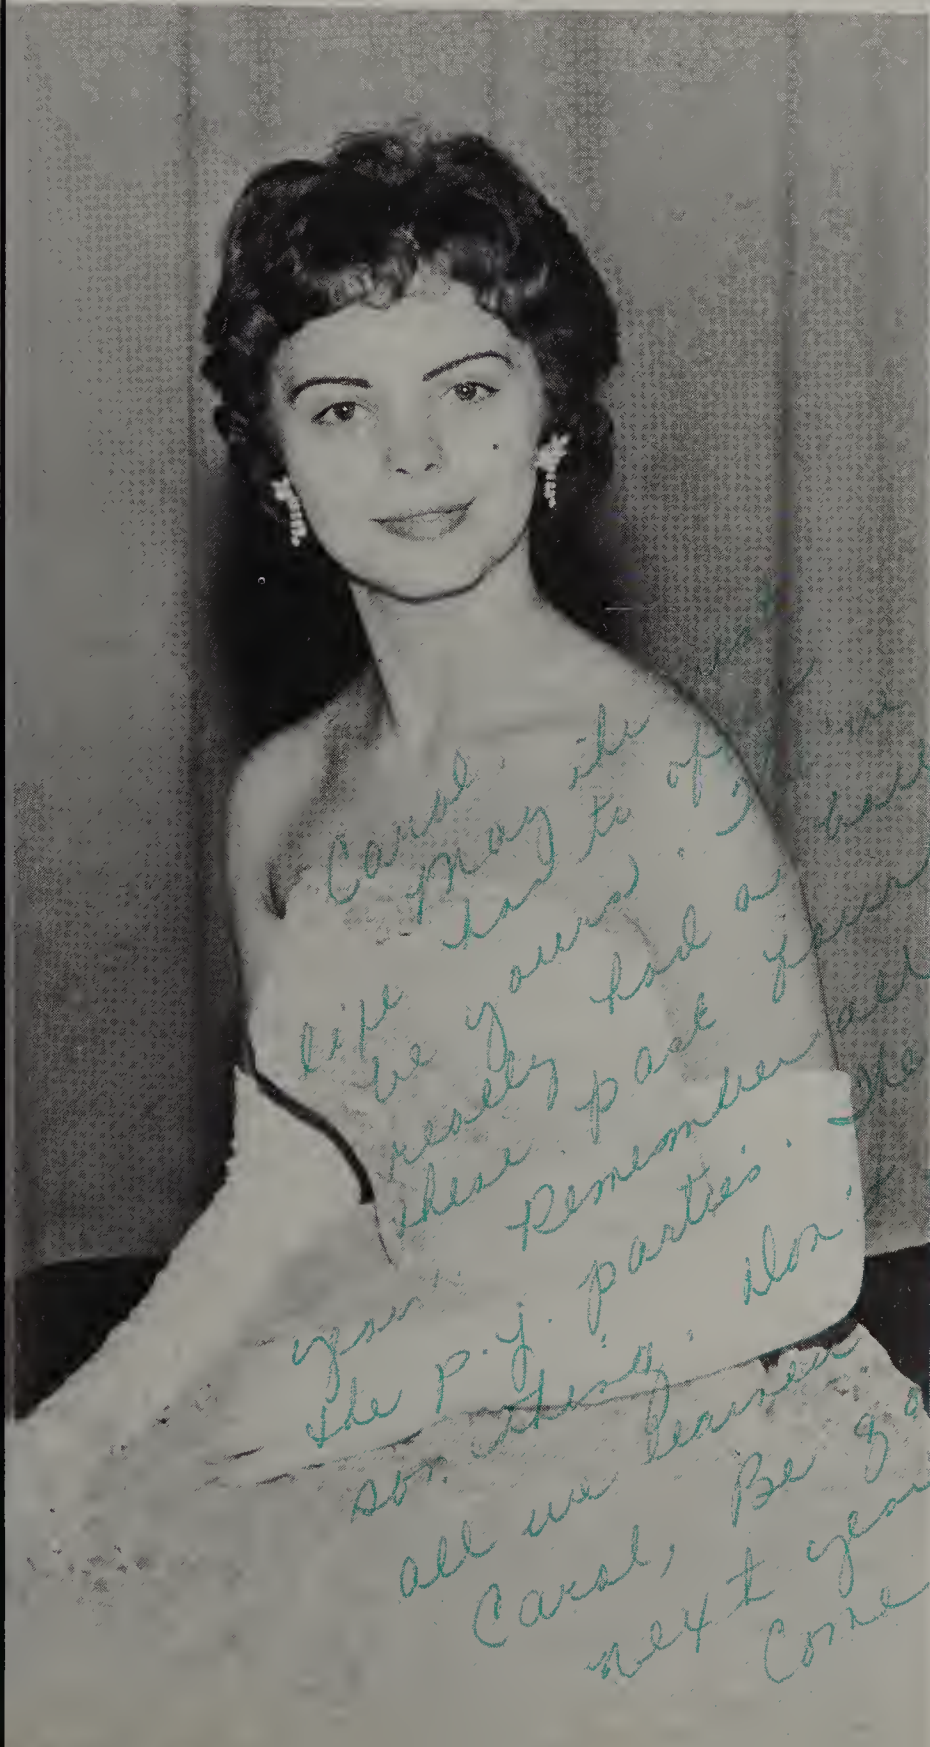 Carol,
May the best
life has to offer
be yours. I've
really had a ball
these past four
years. Remember all
the p.j. parties.
something. Don
all we learned
Carol, Be go
next year
Come